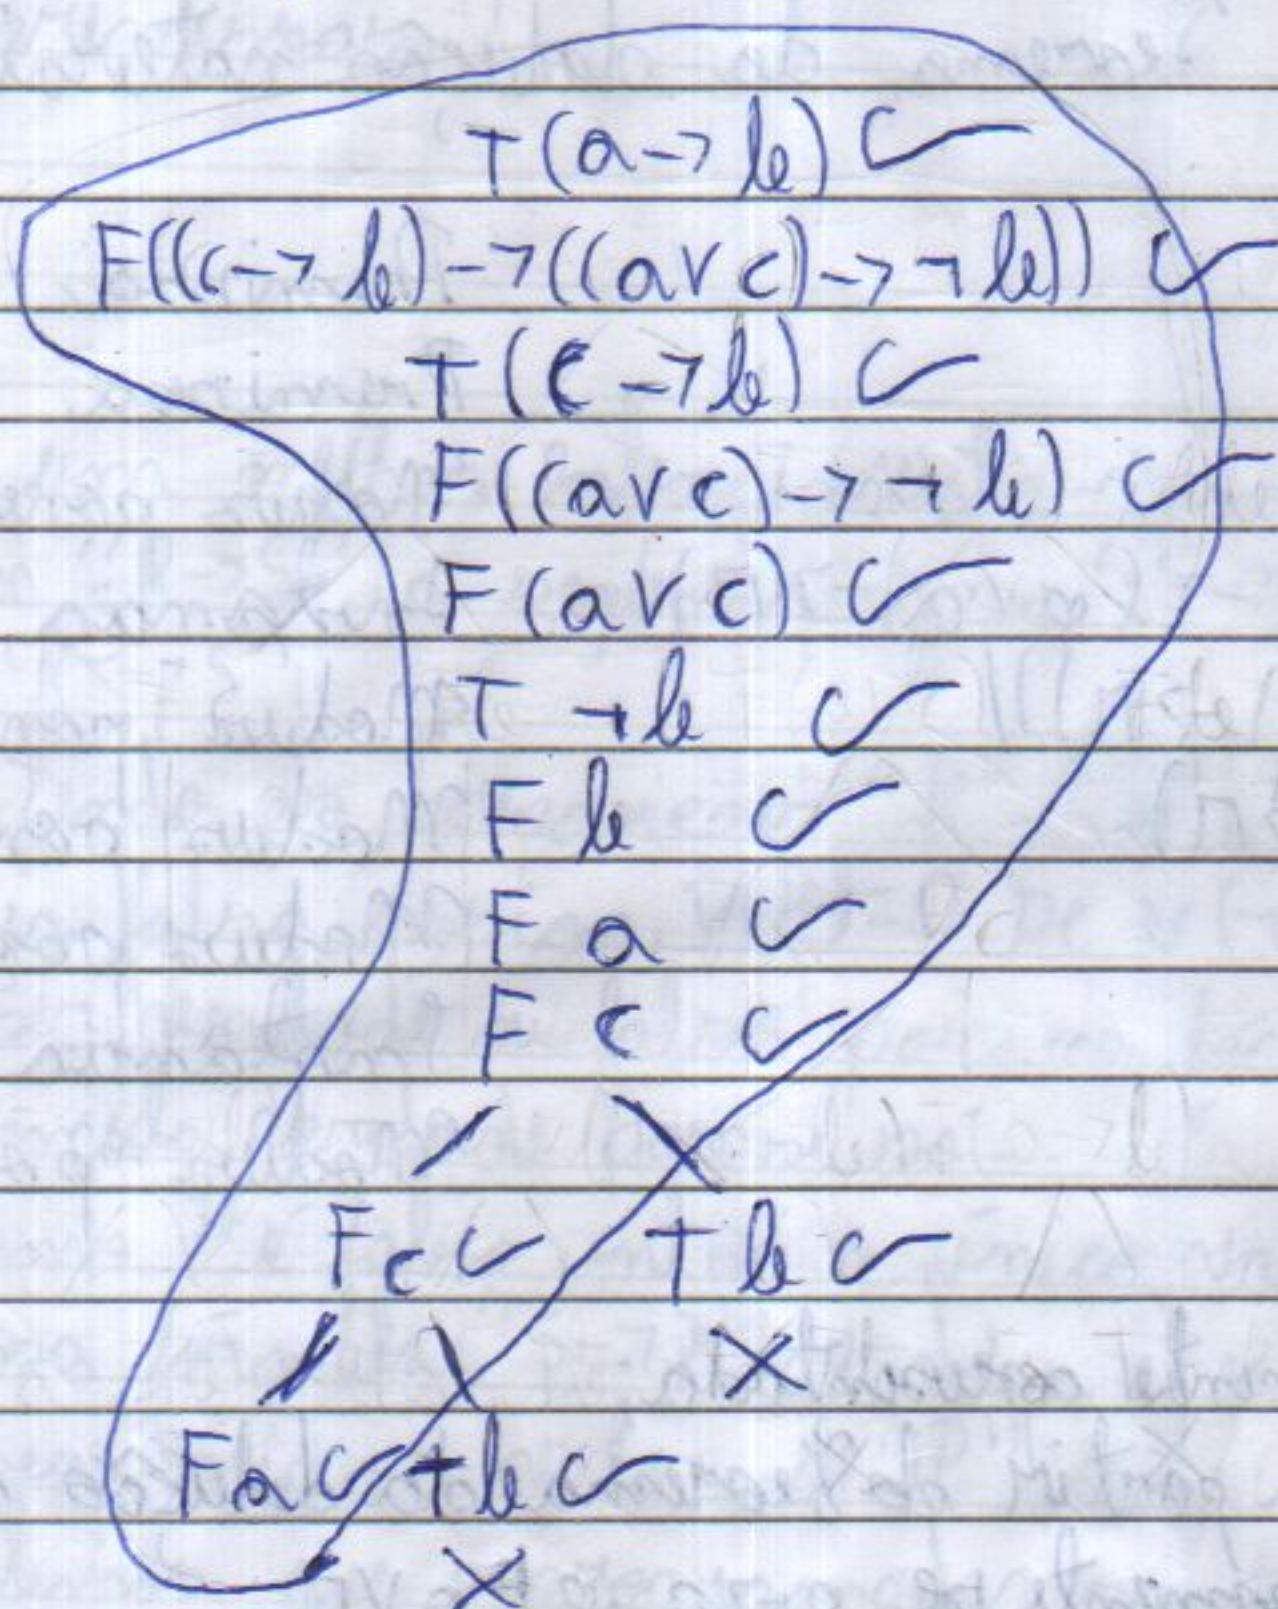 T(a→b) ✓
F((c→b)→((a∨c)→¬b)) ✓
T(c→b) ✓
F((a∨c)→¬b) ✓
F(a∨c) ✓
T ¬b ✓
F b ✓
F a ✓
F c ✓
Fc ✓ Tb ✓
X
Fa ✓ Tb ✓
X